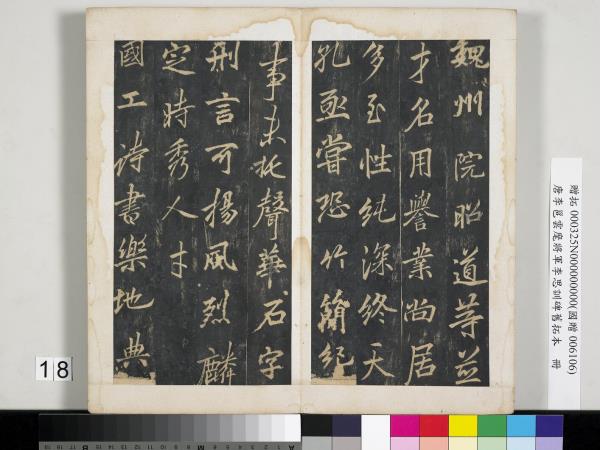 魏州院昭道等並
才名用譽業尚居
多至性純深終天
孔亟嘗恐竹簡紀
事未極聲華石字
刊言可揚風烈麟
定時秀人才
國工詩書樂地典
贈拓 000325N000000000(國贈 006106)
唐李邕雲麾將軍李思訓碑舊拓本 冊
18